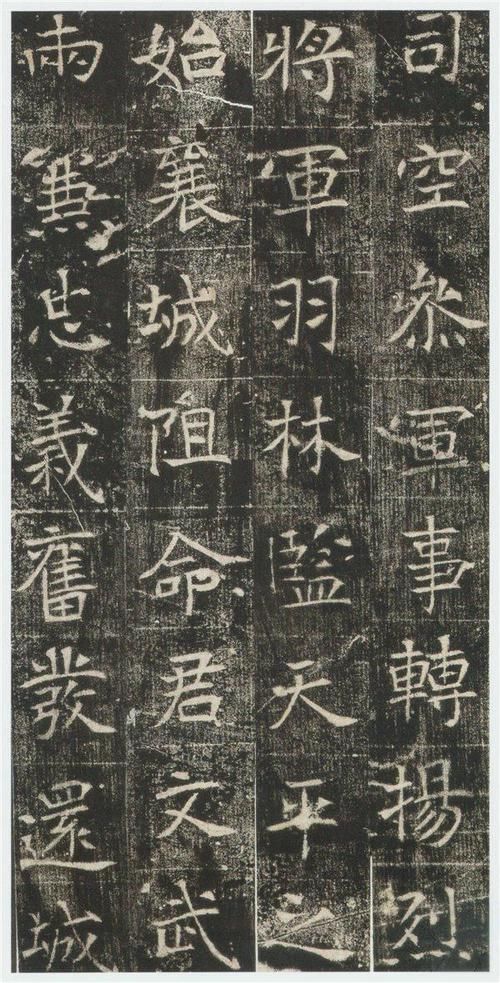 司空參軍事轉揚烈
將軍羽林監天平之
始襄城阻命君文武
兩兼忠義奮發還城